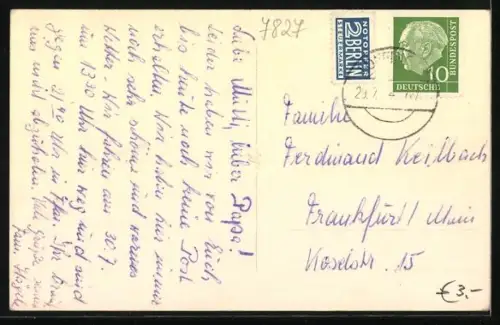 7827
NOTOPFER
2 BERLIN
STEUERMARKE
DEUTSCHE
BUNDESPOST
10
Liebe Mutti, lieber Papa!
Leider haben wir von Euch
bis heute noch keine Post
erhalten. Wir haben hier immer
noch sehr schönes und warmes
Wetter. Wir fahren am 30.7.
um 13.30 Uhr hier weg und sind
gegen 21.40 Uhr in Ffm. Ihr braucht
uns nicht abzuholen. Viele Grüße
Familie
Ferdinand Keilbach
Frankfurt/Main
Koselstr. 15
€3,-